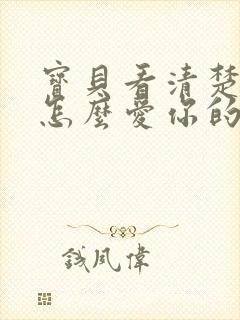 寶貝看清楚
怎麼愛你的
錢風偉